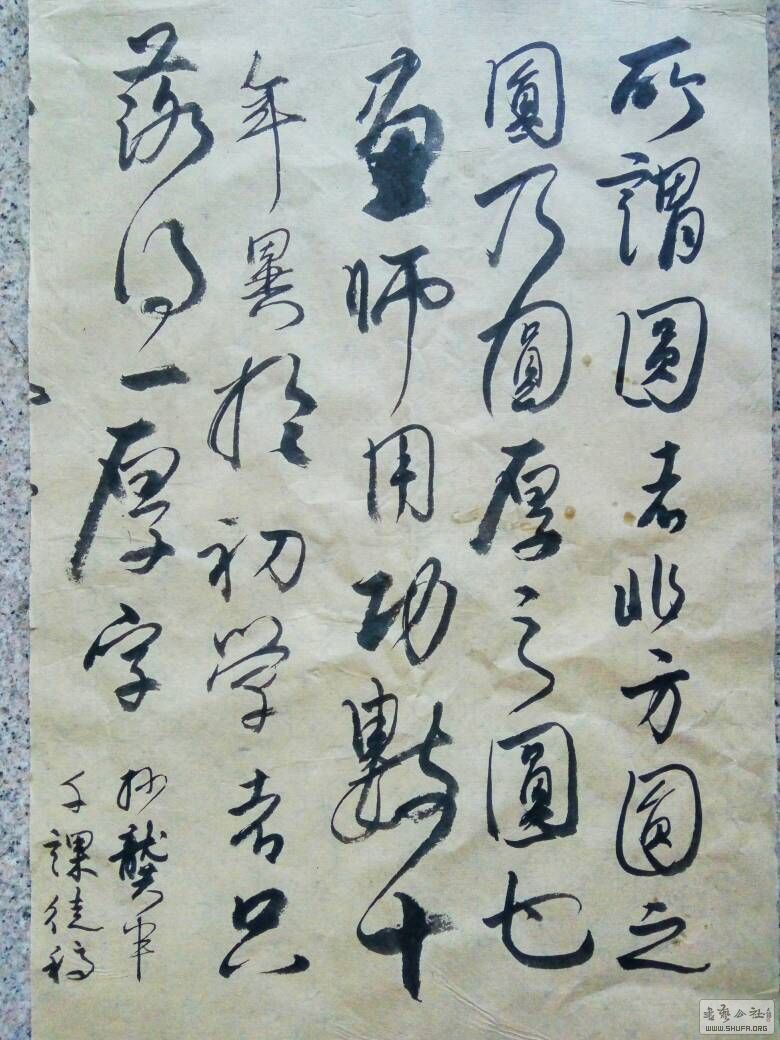 所謂圓者非方圓之
圓乃圓厚之圓也
畫師用功數十
年異於初學者只
落得一厚字
抄龔半
千課徒稿
书艺公社
WWW.SHUFA.ORG